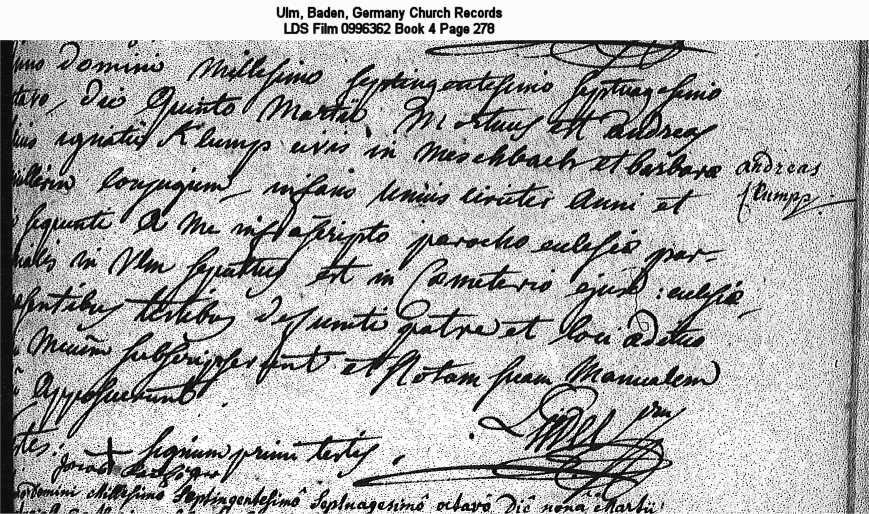 Ulm, Baden, Germany Church Records
LDS Film 0996362 Book 4 Page 278
Domini Millesimo Septingentesimo Septuagesimo
die Quinto Martii Mortuus est andreas
ignatii Klump civis in Meschbach et barbara
andreas
Klumpp
Conjugum, infans unius circiter Anni et
sequenti a me infrascripto parocho eclesiæ par-
in Vlm sepultus est in Cœmeterio ejusd: eclesiæ
testibus defuncti patre et loci ædituo
Mecum subscripserunt et Notam suam Manualem
apposuerunt
signum primi testis
Domini Millesimo Septingentesimô Septuagesimô octavô Diê nonâ Martii